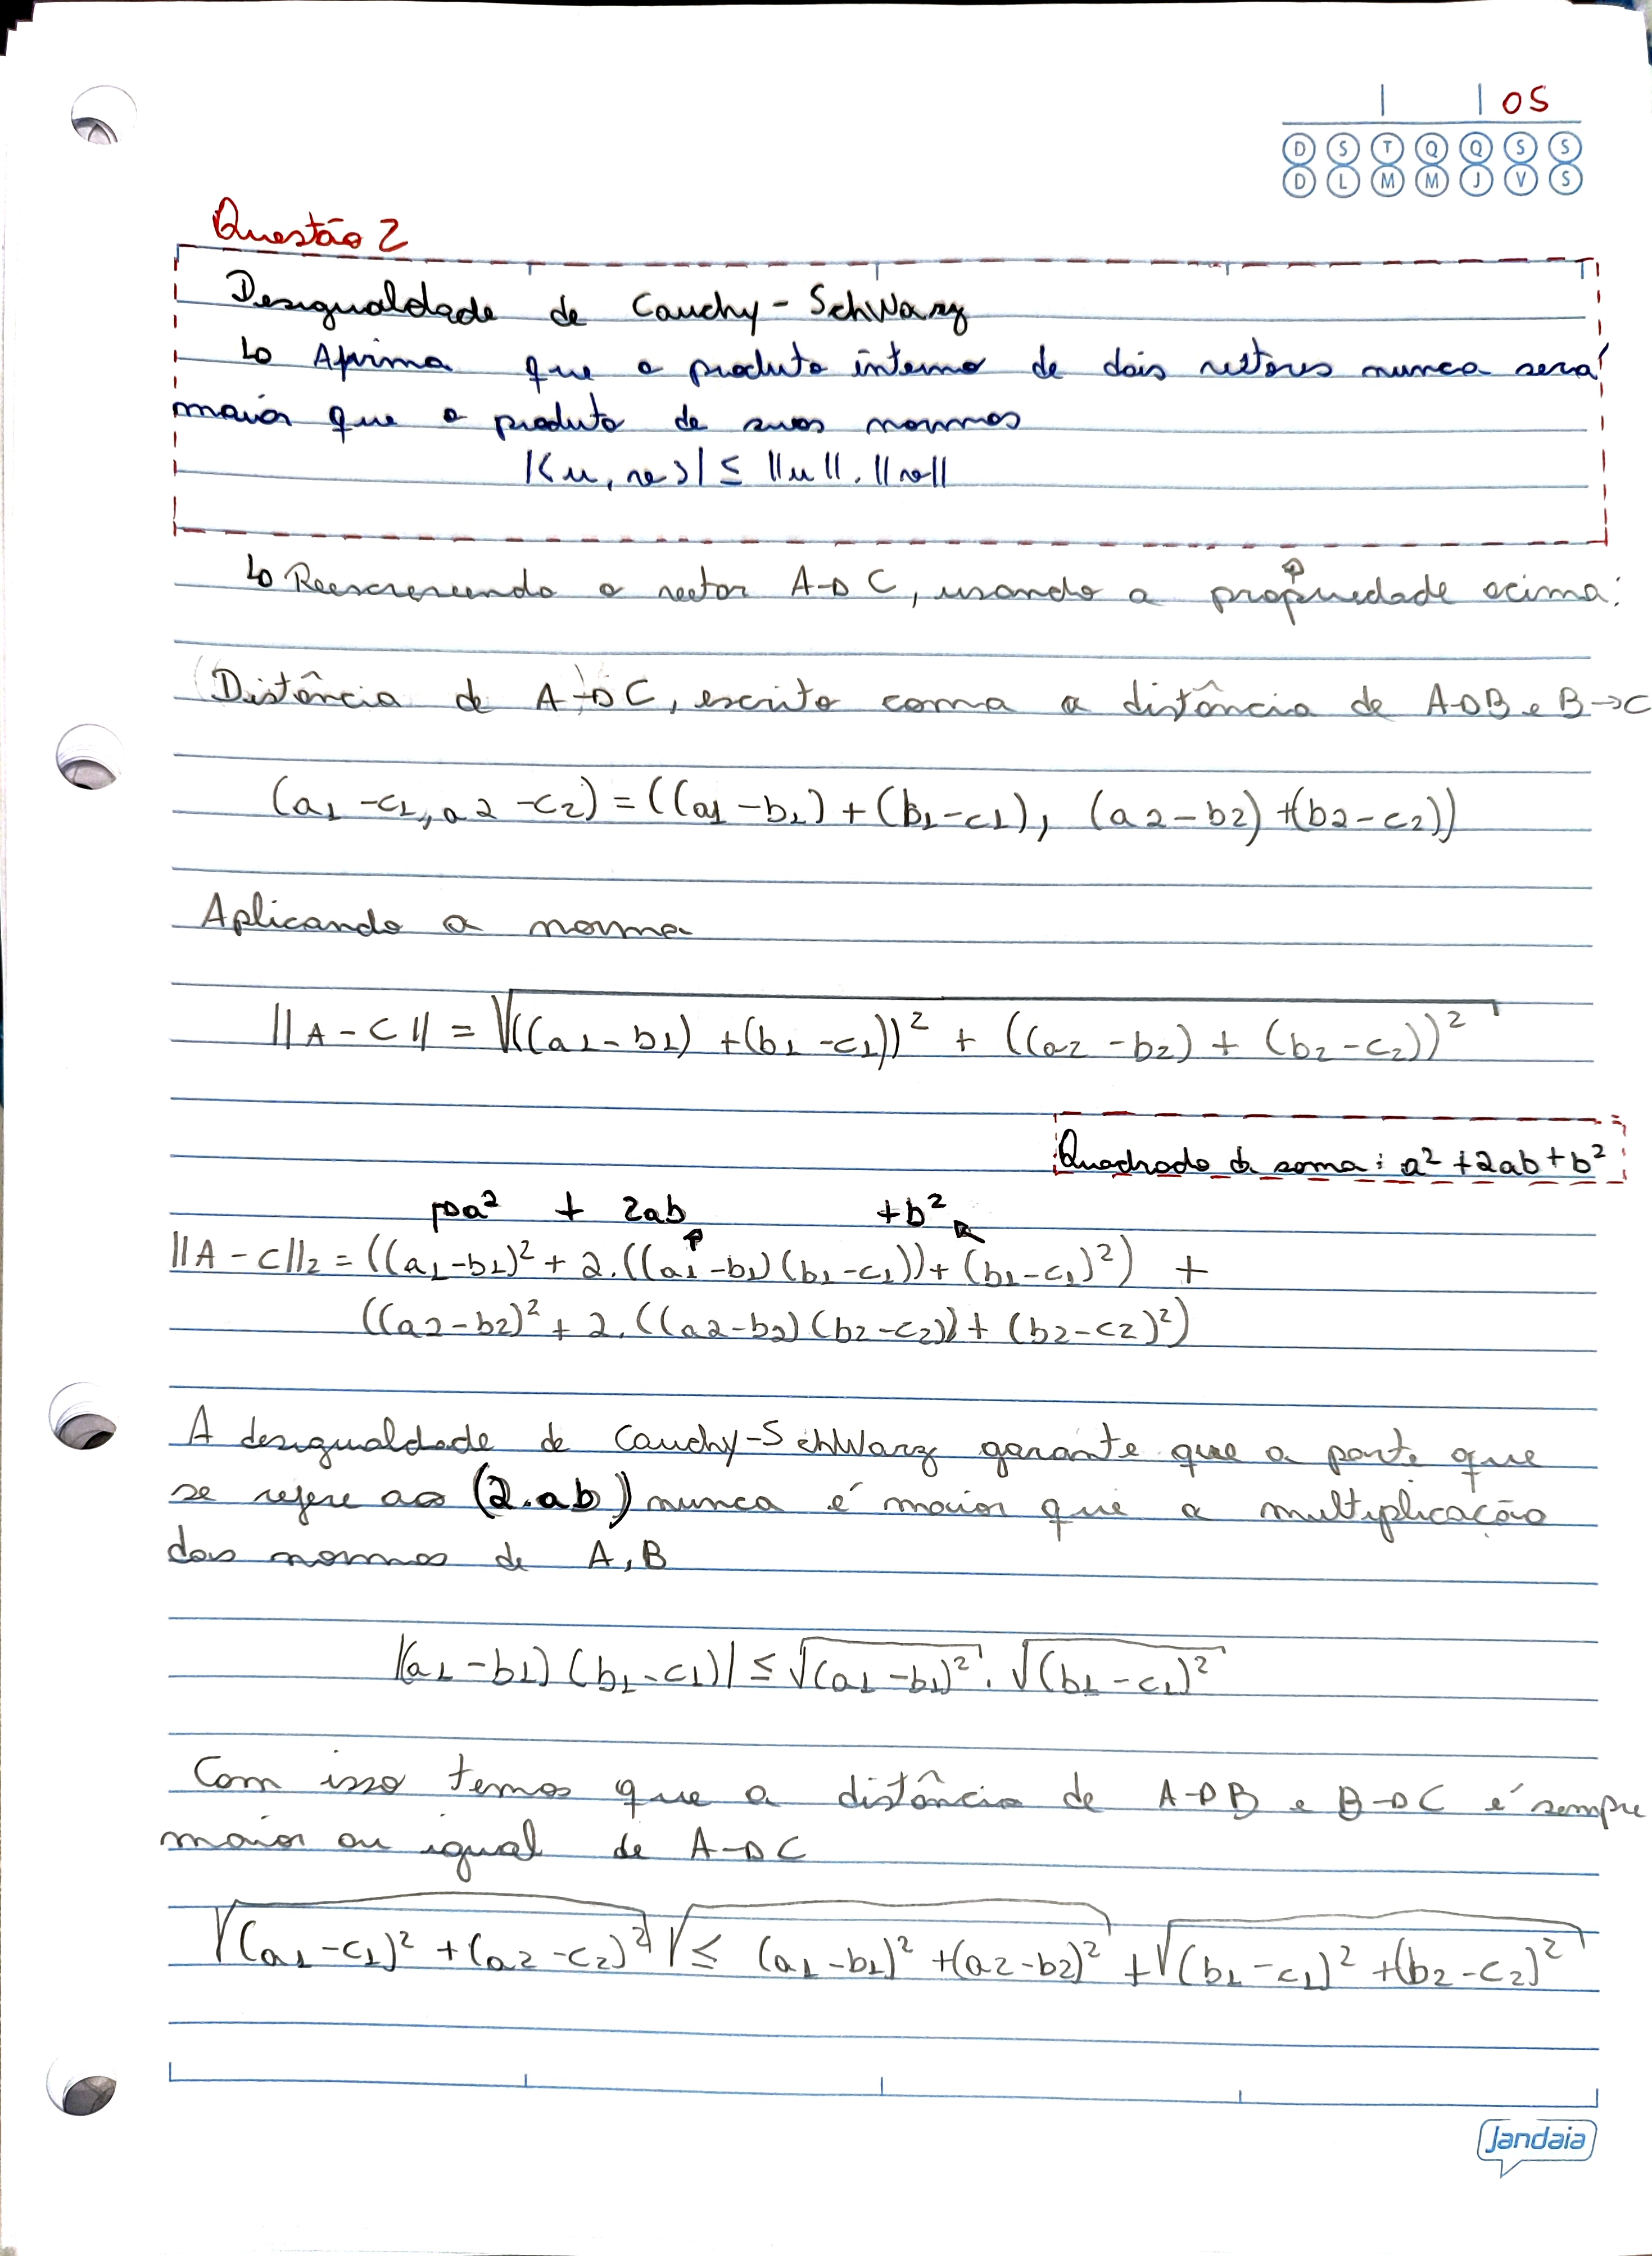 05
D S T Q Q S S
D L M M J V S
Questão 2
Desigualdade de Cauchy-SchWarz
↳ Afirma que o produto interno de dois vetores nunca será
maior que o produto de suas normas
|<u, v>| ≤ ||u||. ||v||
↳ Reescrevendo o vetor A→C, usando a propriedade acima:
Distância de A→C, escrito como a distância de A→B e B→C
(a1 -c1, a2 -c2) = ((a1 -b1) + (b1-c1), (a2-b2) +(b2-c2))
Aplicando a norma
||A-C|| = √((a1-b1) +(b1-c1))² + ((a2-b2) + (b2-c2))²
Quadrado da soma: a² +2ab+b²
→a² + 2ab +b²
||A-C||2 = ((a1-b1)² + 2.((a1-b1)(b1-c1))+ (b1-c1)²) +
((a2-b2)² + 2.((a2-b2)(b2-c2))+ (b2-c2)²)
A desigualdade de Cauchy-SchWarz garante que a parte que
se refere ao (2.ab) nunca é maior que a multiplicação
das normas de A,B
|(a1-b1)(b1-c1)| ≤ √(a1-b1)² . √(b1-c1)²
Com isso temos que a distância de A→B e B→C é sempre
maior ou igual de A→C
√(a1-c1)² +(a2-c2)² √≤ (a1-b1)² +(a2-b2)² +√(b1-c1)² +(b2-c2)²
Jandaia